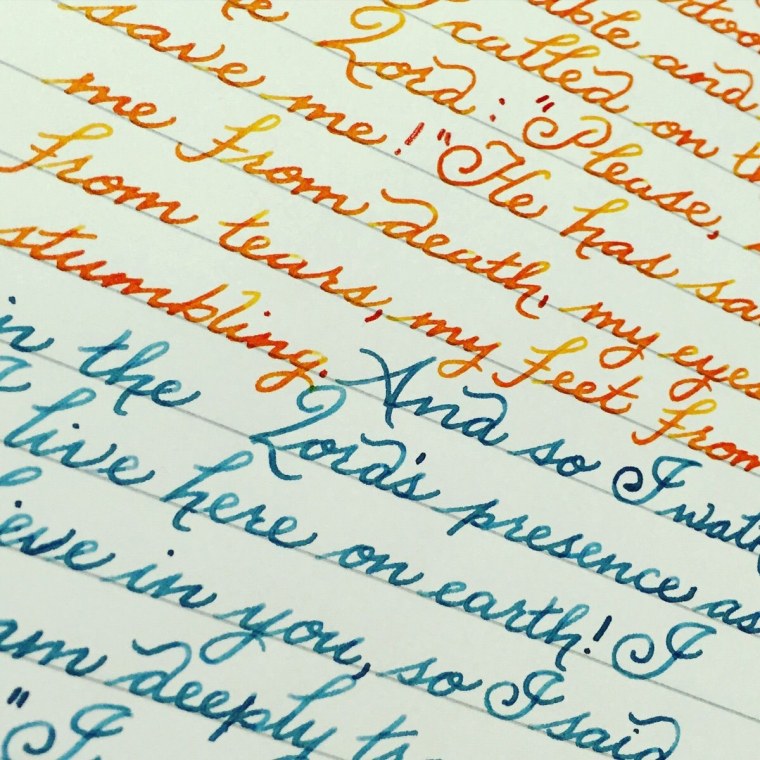 able and
I called on th
he Lord: "Please,
save me! "He has sa
me from death, my eyes
from tears, my feet from
stumbling. And so I walk
in the Lord's presence as
I live here on earth! I
ieve in you, so I said
am deeply tr
"I